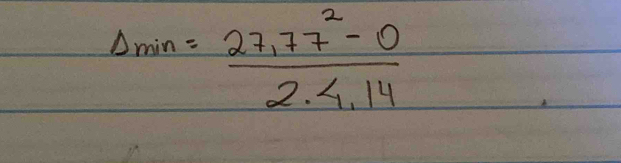 Δmin = 27,77² - 0
2.4,14